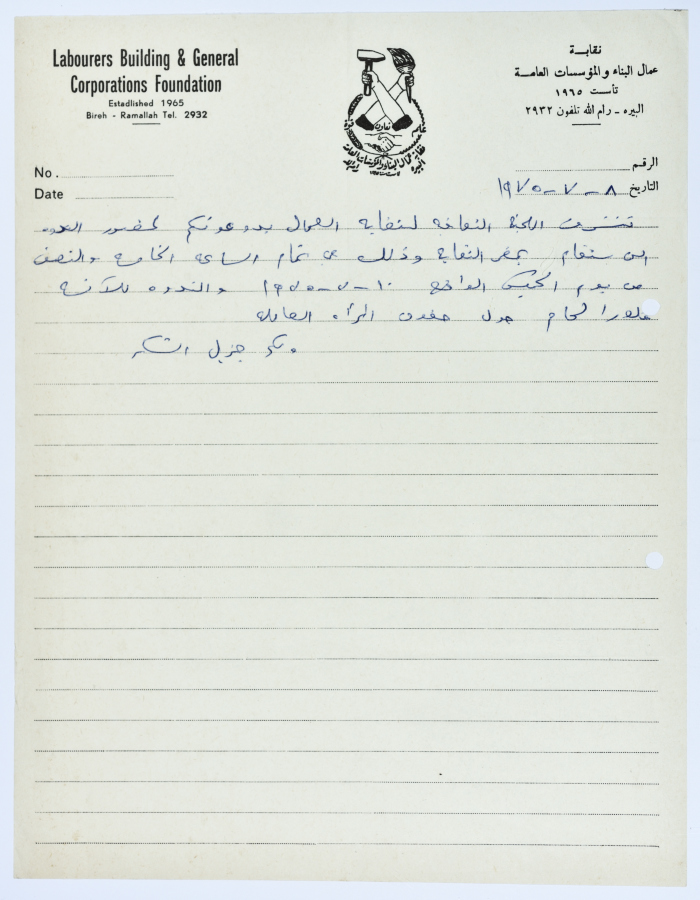 Labourers Building & General
Corporations Foundation
Estadlished 1965
Bireh - Ramallah Tel. 2932
نقابة
عمال البناء والمؤسسات العامة
تأست ١٩٦٥
البيره - رام الله تلفون ٢٩٣٢
تعاون
No.
Date
الرقم
التاريخ ٨-٧-١٩٧٥
تتشرف اللجنة الثقافيه لنقابة العمال بدعوتكم لحضور الندوه
التي ستقام بمقر النقابة وذلك في تمام الساعه الخامسه والنصف
من يوم الخميس الواقع ١٠-٧-١٩٧٥ والندوه للآنسه
المحام حول حقوق المرأه العامله
ولكم جزيل الشكر